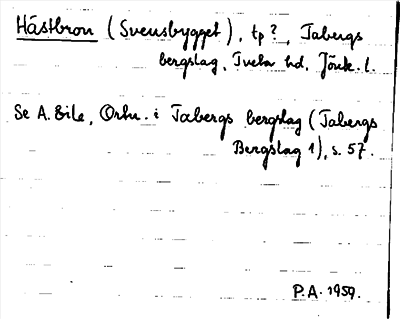 Hästbron (Svensbygget), tp?, Tabergs
bergslag, Tveta hd, Jönk. l.
Se A. Eile, Ortn. i Tabergs bergslag (Tabergs
Bergslag 1), s. 57.
P.A. 1959.